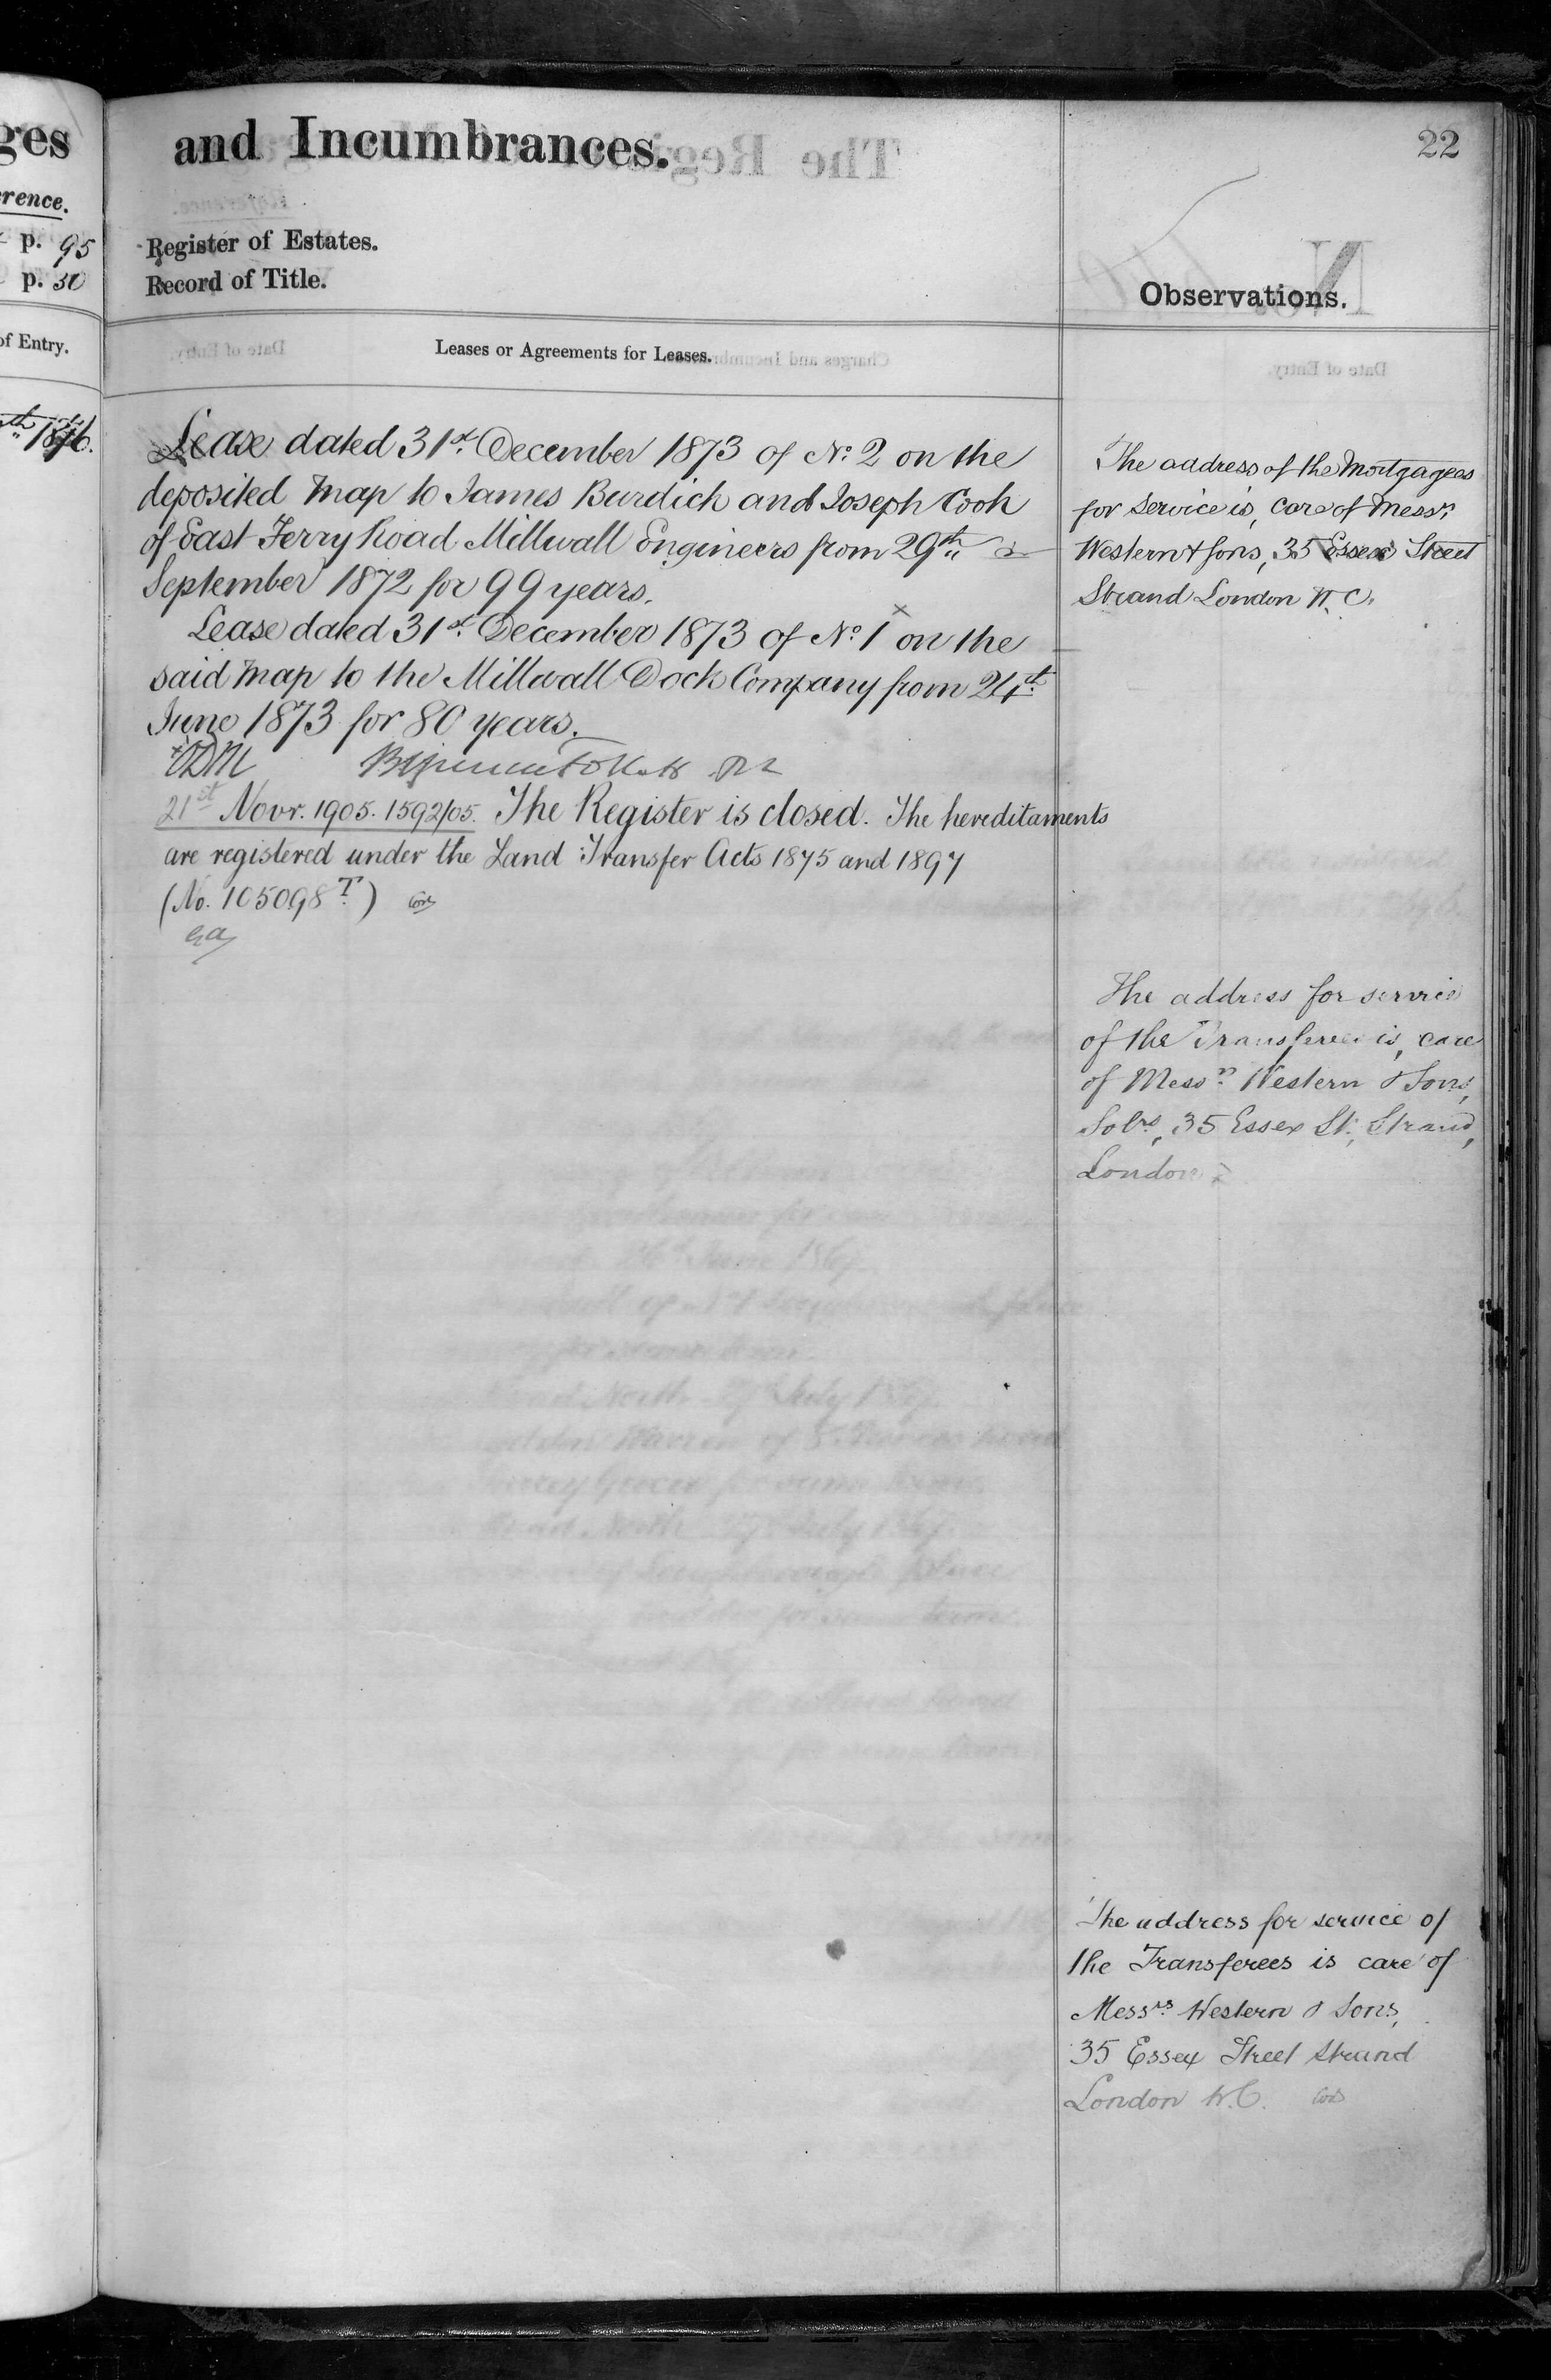 ges
rence.
p. 95
p. 30
of Entry.
and Incumbrances.
22
Register of Estates.
Record of Title.
Observations.
Leases or Agreements for Leases.
Lease dated 31st. December 1873 of No. 2 on the
deposited Map to James Burdick and Joseph Cook
of East Ferry Road Millwall Engineers from 29th.
September 1872 for 99 years.
Lease dated 31st. December 1873 of No. 1 on the
said Map to the Millwall Dock Company from 24th.
June 1873 for 80 years.
21st Novr. 1905. 1592/05. The Register is closed. The hereditaments
are registered under the Land Transfer Acts 1875 and 1897
(No. 105098T.)
The address of the Mortgagees
for service is, care of Messrs.
Western & Sons, 35 Essex Street
Strand London W.C.
The address for service
of the Transferees is, care
of Messrs. Western & Sons,
Solrs, 35 Essex St., Strand,
London
The address for service of
the Transferees is care of
Messrs. Western & Sons,
35 Essex Street Strand
London W.C.